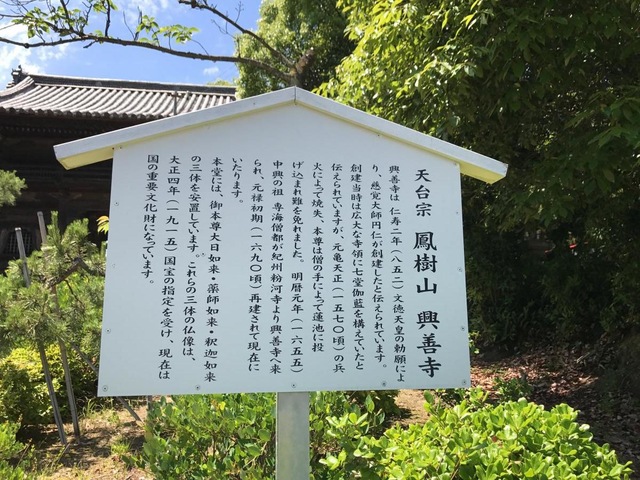 天台宗 鳳樹山 興善寺
興善寺は 仁寿二年（八五二）文徳天皇の勅願によ
り、慈覚大師円仁が創建したと伝えられています。
創建当時は広大な寺領に七堂伽藍を構えていたと
伝えられていますが、元亀天正（一五七〇頃）の兵
火によって焼失、本尊は僧の手によって蓮池に投
げ込まれ難を免れました。明暦元年（一六五五）
中興の祖 専海僧都が紀州粉河寺より興善寺へ来
られ、元禄初期（一六九〇頃）再建されて現在に
いたります。
本堂には、御本尊大日如来・薬師如来・釈迦如来
の三体を安置しています。これらの三体の仏像は、
大正四年（一九一五）国宝の指定を受け、現在は
国の重要文化財になっています。